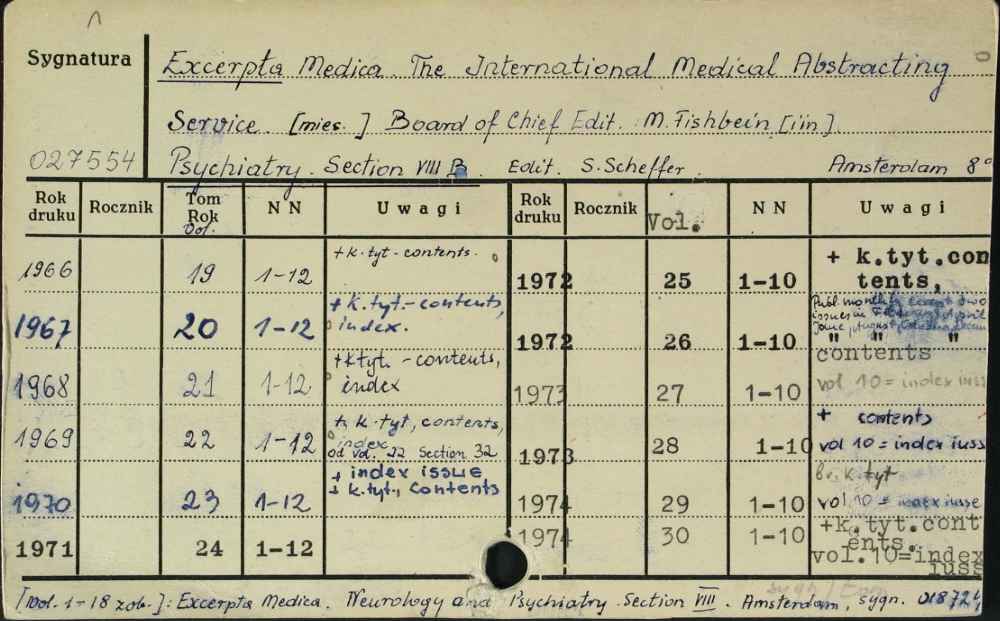 Sygnatura
Excerpta Medica. The International Medical Abstracting
Service. [mies.] Board of Chief Edit. M. Fishbein [i in]
027554
Psychiatry. Section VIII B. Edit. S. Scheffer. Amsterdam 8°
Rok druku Rocznik Tom Rok Vol. NN Uwagi Rok druku Rocznik Vol. NN Uwagi
1966 19 1-12 + k. tyt - contents.
1967 20 1-12 + k. tyt. - contents,
index.
1968 21 1-12 + k tyt. - contents,
index
1969 22 1-12 + k. tyt, contents,
index
od vol. 22 Section 32
1970 23 1-12 + index issue
+ k. tyt., contents
1971 24 1-12
1972 25 1-10 + k.tyt.con
tents,
Publ. monthly except two
issues in
1972 26 1-10 " " "
contents
1973 27 1-10 vol 10 = index iuss
+ contents
1973 28 1-10 vol 10 = index iuss
br. k. tyt
1974 29 1-10 vol 10 = index iusse
1974 30 1-10 +k.tyt.cont
ents.
vol.10=index
iuss
[Vol. 1-18 zob.]: Excerpta Medica. Neurology and Psychiatry. Section VIII. Amsterdam, sygn. 018724